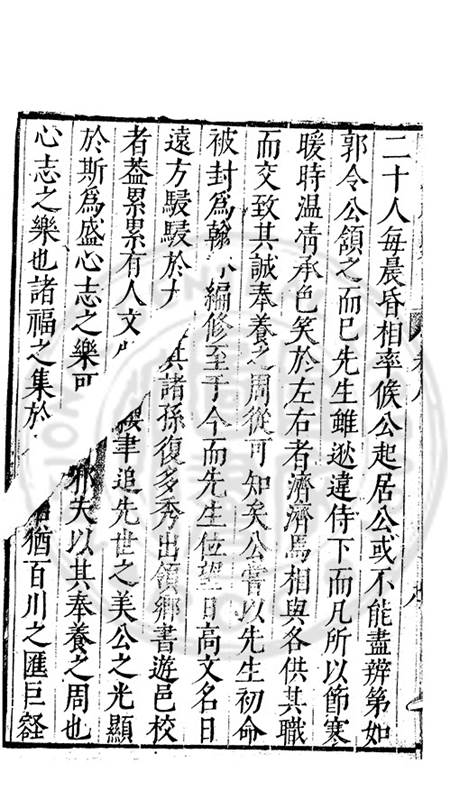 二十人每晨昏相率候公起居公或不能盡辨第如
郭令公頷之而已先生雖逖違侍下而凡所以節寒
暖時温凊承色笑於左右者濟濟焉相與各供其職
而交致其誠奉養之周從可知矣公嘗以先生初命
被封爲翰 編修至于今而先生位望日高文名日
遠方駸駸於 其諸孫復多秀出領鄉書遊邑校
者葢累累有人文 聿追先世之美公之光顯
於斯爲盛心志之樂 邪夫以其奉養之周也
心志之樂也諸福之集於 猶百川之匯巨壑